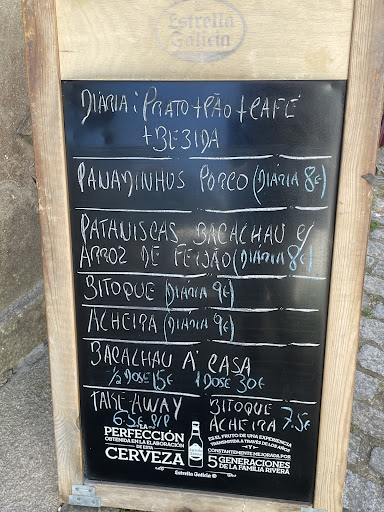 Estrella
Galicia
DIÁRIA: PRATO + PÃO + CAFÉ
+ BEBIDA
PANADINHOS PORCO (DIÁRIA 8€)
PATANISCAS BACALHAU C/
ARROZ DE FEIJÃO (DIÁRIA 8€)
BITOQUE (DIÁRIA 9€)
ALHEIRA (DIÁRIA 9€)
BACALHAU Á CASA
1/2 DOSE 15€ 1 DOSE 30€
TAKE-AWAY
6.5€
BITOQUE
ALHEIRA 7.5€
LA
PERFECCIÓN
OBTENIDA EN LA ELABORACIÓN
DE ESTA
CERVEZA
ES EL FRUTO DE UNA EXPERIENCIA
TRANSMITIDA A TRAVÉS DE LOS AÑOS
Y
CONSTANTEMENTE MEJORADA POR
5 GENERACIONES
DE LA FAMILIA RIVERA
Estrella Galicia